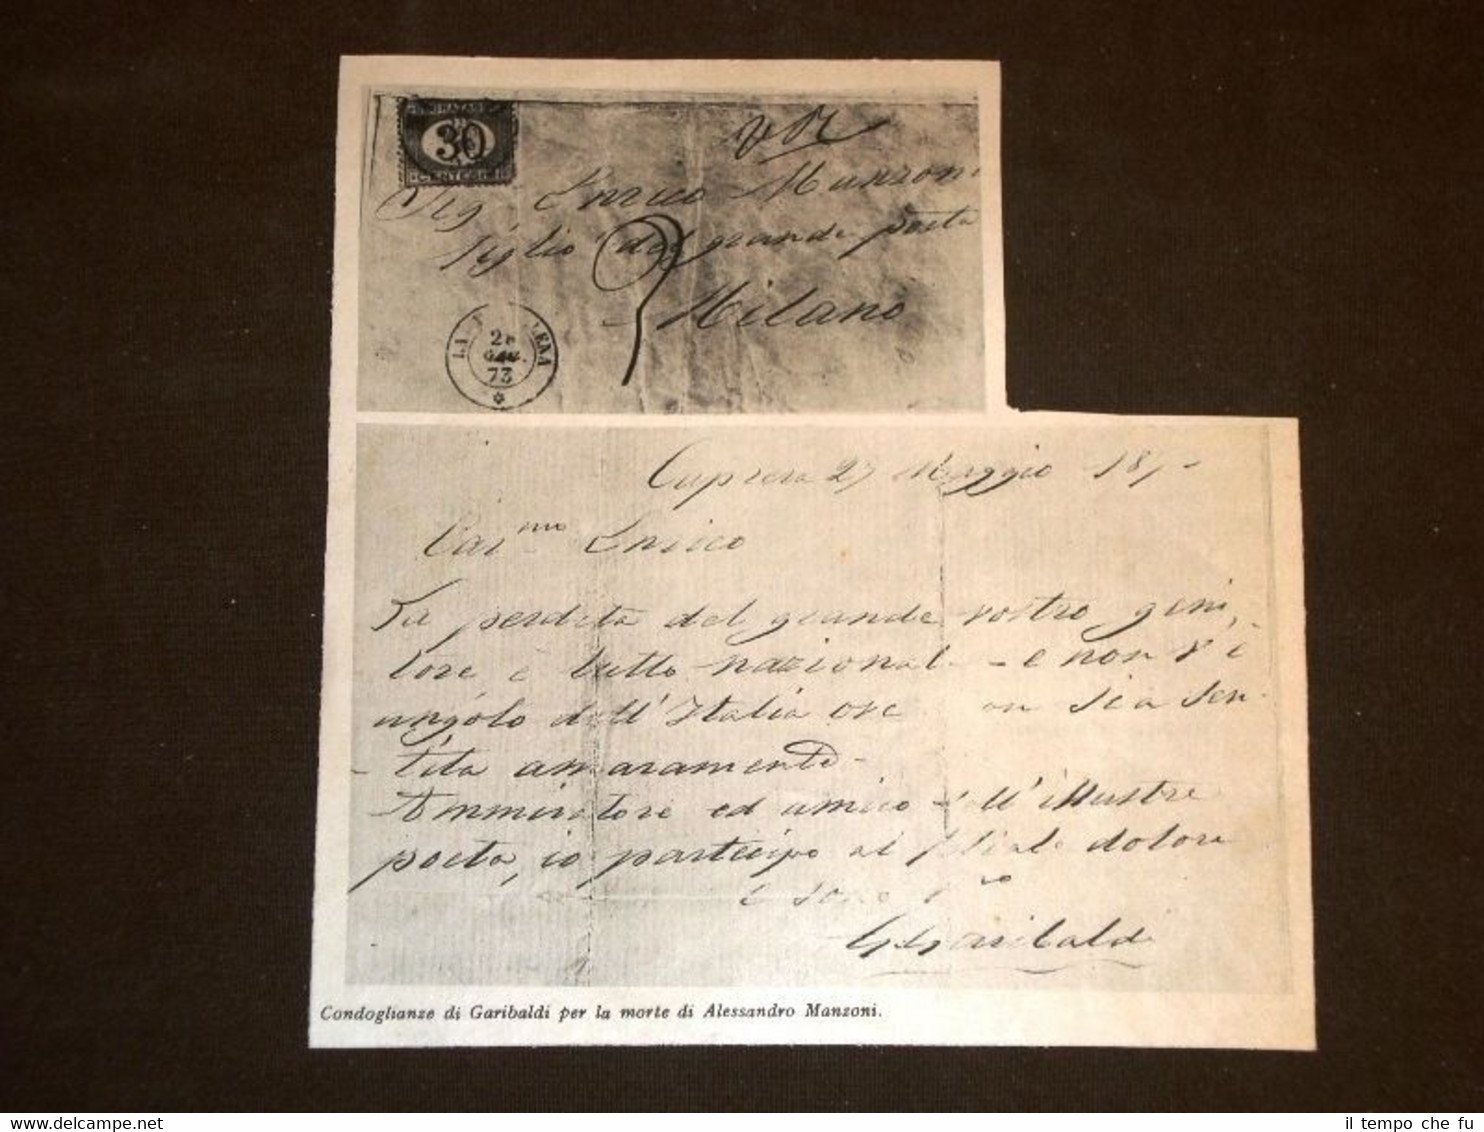 30
Sig Enrico Manzoni
figlio del grande poeta
Milano
73
Caprera 27 Maggio 187
Car.mo Enrico
La perdita del grande vostro geni,
tore è tutta nazionale - e non v'è
angolo dell'Italia ove non sia sen-
tita amaramente -
Ammiratore ed amico dell'illustre
poeta, io partecipo al filiale dolore
e sono
G Garibaldi
Condoglianze di Garibaldi per la morte di Alessandro Manzoni.
il tempo che fu